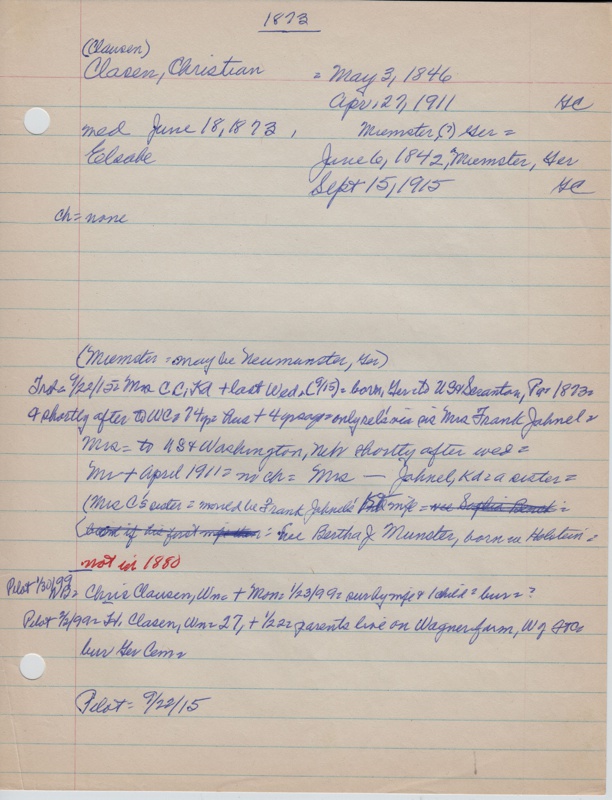 1873
(Clausen)
Clasen, Christian = May 3, 1846
Apr. 27, 1911 GC
med June 18, 1873, Miemster (?) Ger =
Elsabe June 6, 1842, Miemster, Ger
Sept 15, 1915 GC
ch = none
(Miemster = may be Neumunster, Ger)
9/22/15 = Mrs C C, Kd + last Wed. (9/15) = born Ger to USA Scranton, Pa = 1873 =
& shortly after to WC = 74y = hus + 4 yrs ago = only rel's vic is Mrs Frank Jahnel =
Mrs = to US & Washington, Neb shortly after wed =
Mr + April 1911 = no ch = Mrs — Jahnel, Kd = a sister =
(Mrs C's sister = Frank Jahnel's 1st wife = nee Sophia
(but if his first wife then = nee Bertha J Munster, born in Holstein =
not in 1880
Pilot 1/30/99 = Chris Clausen, Wn = + Mon = 1/23/99 = sur by wife & 1 child = bur = ?
Pilot 2/2/99 = H. Clasen, Wn = 27, + 1/22 = parents live on Wagner farm, W of
bur Ger Cem =
Pilot = 9/22/15